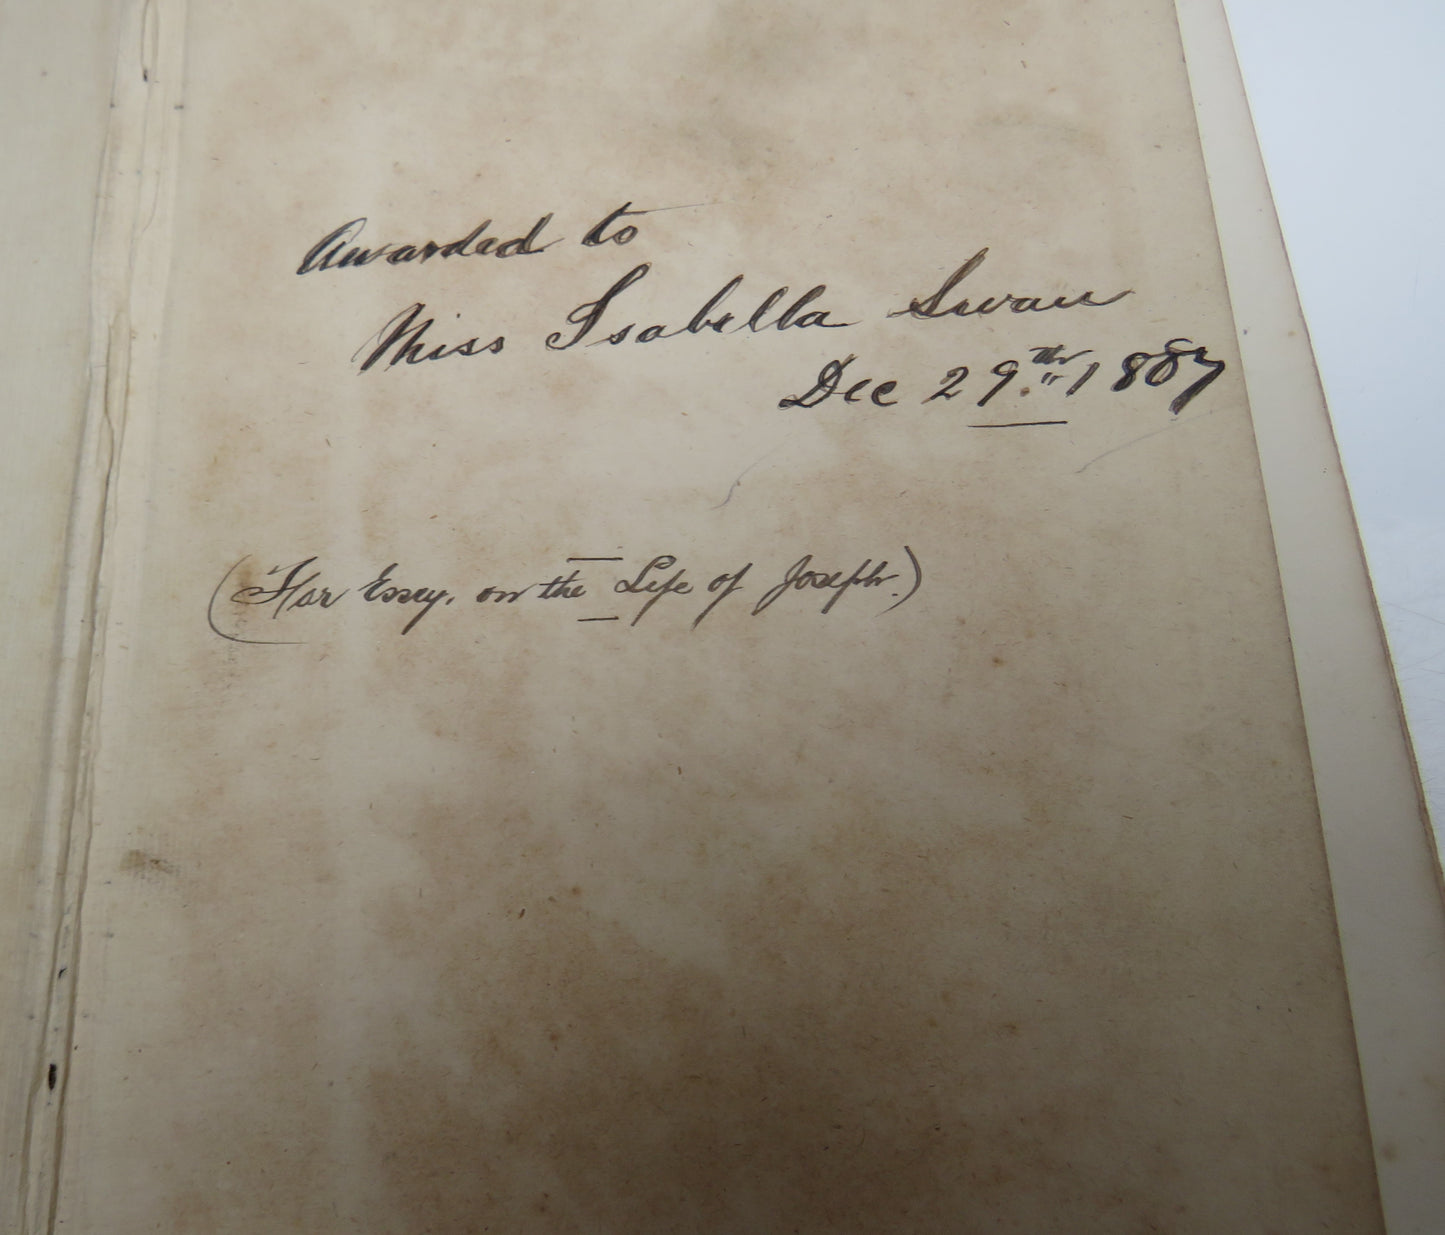 Awarded to
Miss Isabella Swan
Dec 29th 1887
(For Essay, on the Life of Joseph.)